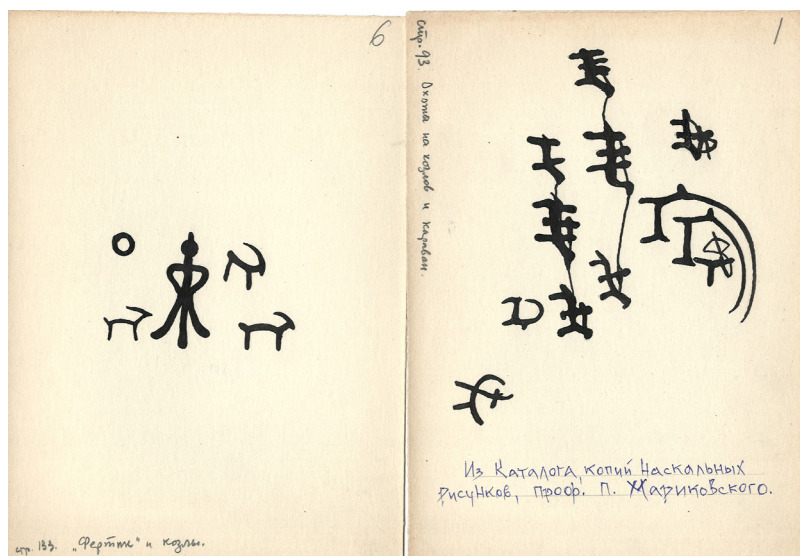 6
стр. 133. „Фертик“ и козлы.
1
стр. 93. Охота на козлов и караван.
Из Каталога копий Наскальных
Рисунков, проф. П. Мариковского.